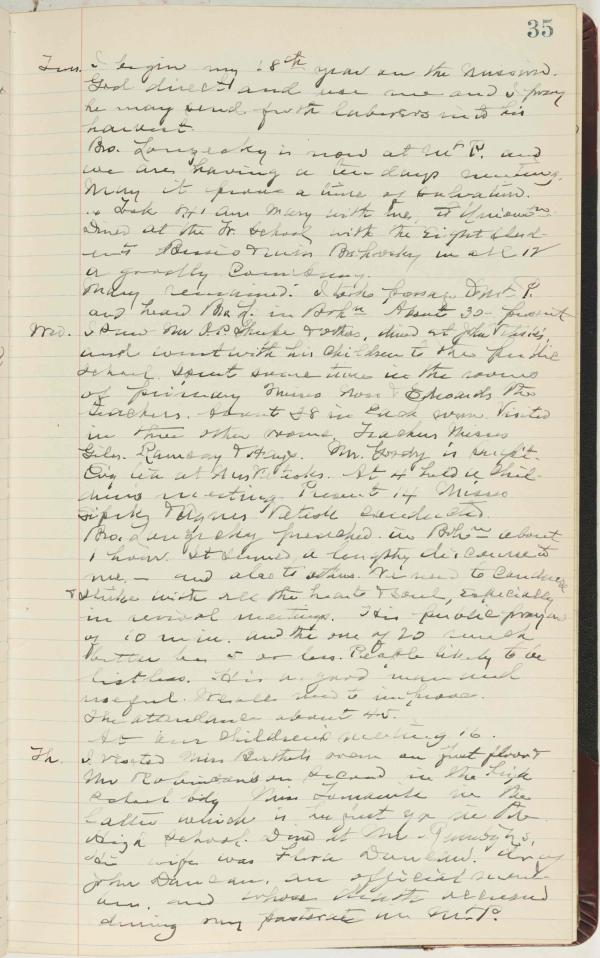 35
Tues. I begin my 18th year on the mission.
God direct and use me and I pray
he may send forth laborers into his
harvest.
Bro. is now at Mt P. and
we are having a ten days meeting.
May it prove a time of salvation.
Took Mary with me, to
Dined at the Tr. School with the eight
in all 12
a goodly company.
Mary remained. I took passage to Mt P.
and heard Bro. L. in Bohn About 30 present
Wed. I saw Mr & others, dined at John
and went with his children to the public
school. Spent some time in the rooms
of primary Misses & Edwards the
teachers. About 28 in each room. Visited
in three other rooms, Teachers Misses
Giles. Ramsay & Hays. Mr. is Supt.
tea at Mrs At 4 held a chil-
dren's meeting. Present 14 Misses
& Agnes conducted.
Bro. preached in Bohn about
1 hour. It seemed a lengthy discourse to
me, — and also to others. We need to condense
& strike with all the heart & soul, especially
in revival meetings. His public prayer
of 10 min. and the one of 20 much
better be 5 or less. People likely to be
listless. He is a good man and
useful. We all need to improve.
The attendance about 45.
At our children's meeting 16.
Th. I visited Miss room on first floor &
Mr Robinson on second in the high
school bldg Miss in the
latter which is in the
High School. Dined at Mr
His wife was Flora Duncan. of
John Duncan, an official mem-
ber, and whose death occurred
during my pastorate in Mt P.